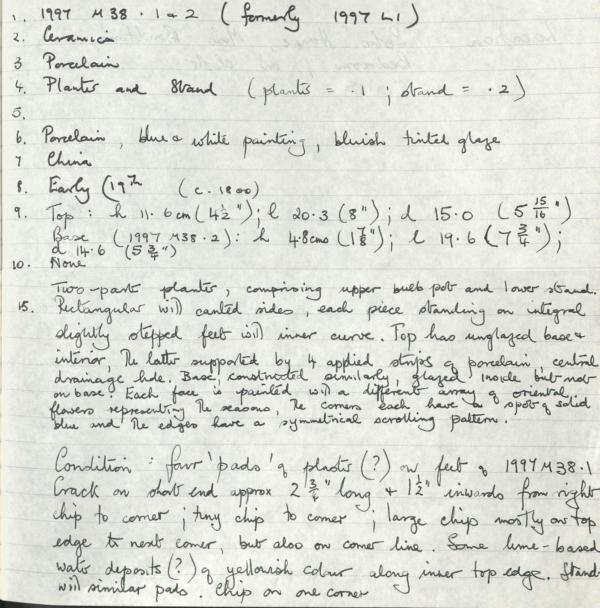 1. 1997 M38 . 1 & 2 ( formerly 1997 LI )
2. Ceramics
3 Porcelain
4. Planter and Stand ( planter = .1 ; stand = .2 )
5.
6. Porcelain, blue & white painting, bluish tinted glaze
7 China
8. Early C19th ( c. 1800)
9. Top : h 11.6 cm (4½") ; l 20.3 (8") ; d 15.0 (5 15/16")
Base (1997 M38.2) : h 4.8cms (1⅞") ; l 19.6 (7¾") ;
d 14.6 (5¾")
10. None
Two-part planter, comprising upper bulb pot and lower stand.
15. Rectangular with canted sides, each piece standing on integral
slightly stepped feet with inner curve. Top has unglazed base &
interior, the latter supported by 4 applied strips of porcelain, central
drainage hole. Base, constructed similarly, glazed inside but not
on base. Each face is painted with a different array of oriental
flowers representing the seasons, the corners each have a spot of solid
blue and the edges have a symmetrical scrolling pattern.
Condition : four 'pads' of plaster (?) on feet of 1997 M38.1
Crack on short end approx 2¾" long & 1½" inwards from right
chip to corner ; tiny chip to corner ; large chip mostly on top
edge to next corner, but also on corner line. Some lime-based
water deposits (?) of yellowish colour along inner top edge. Stand
with similar pads. Chip on one corner